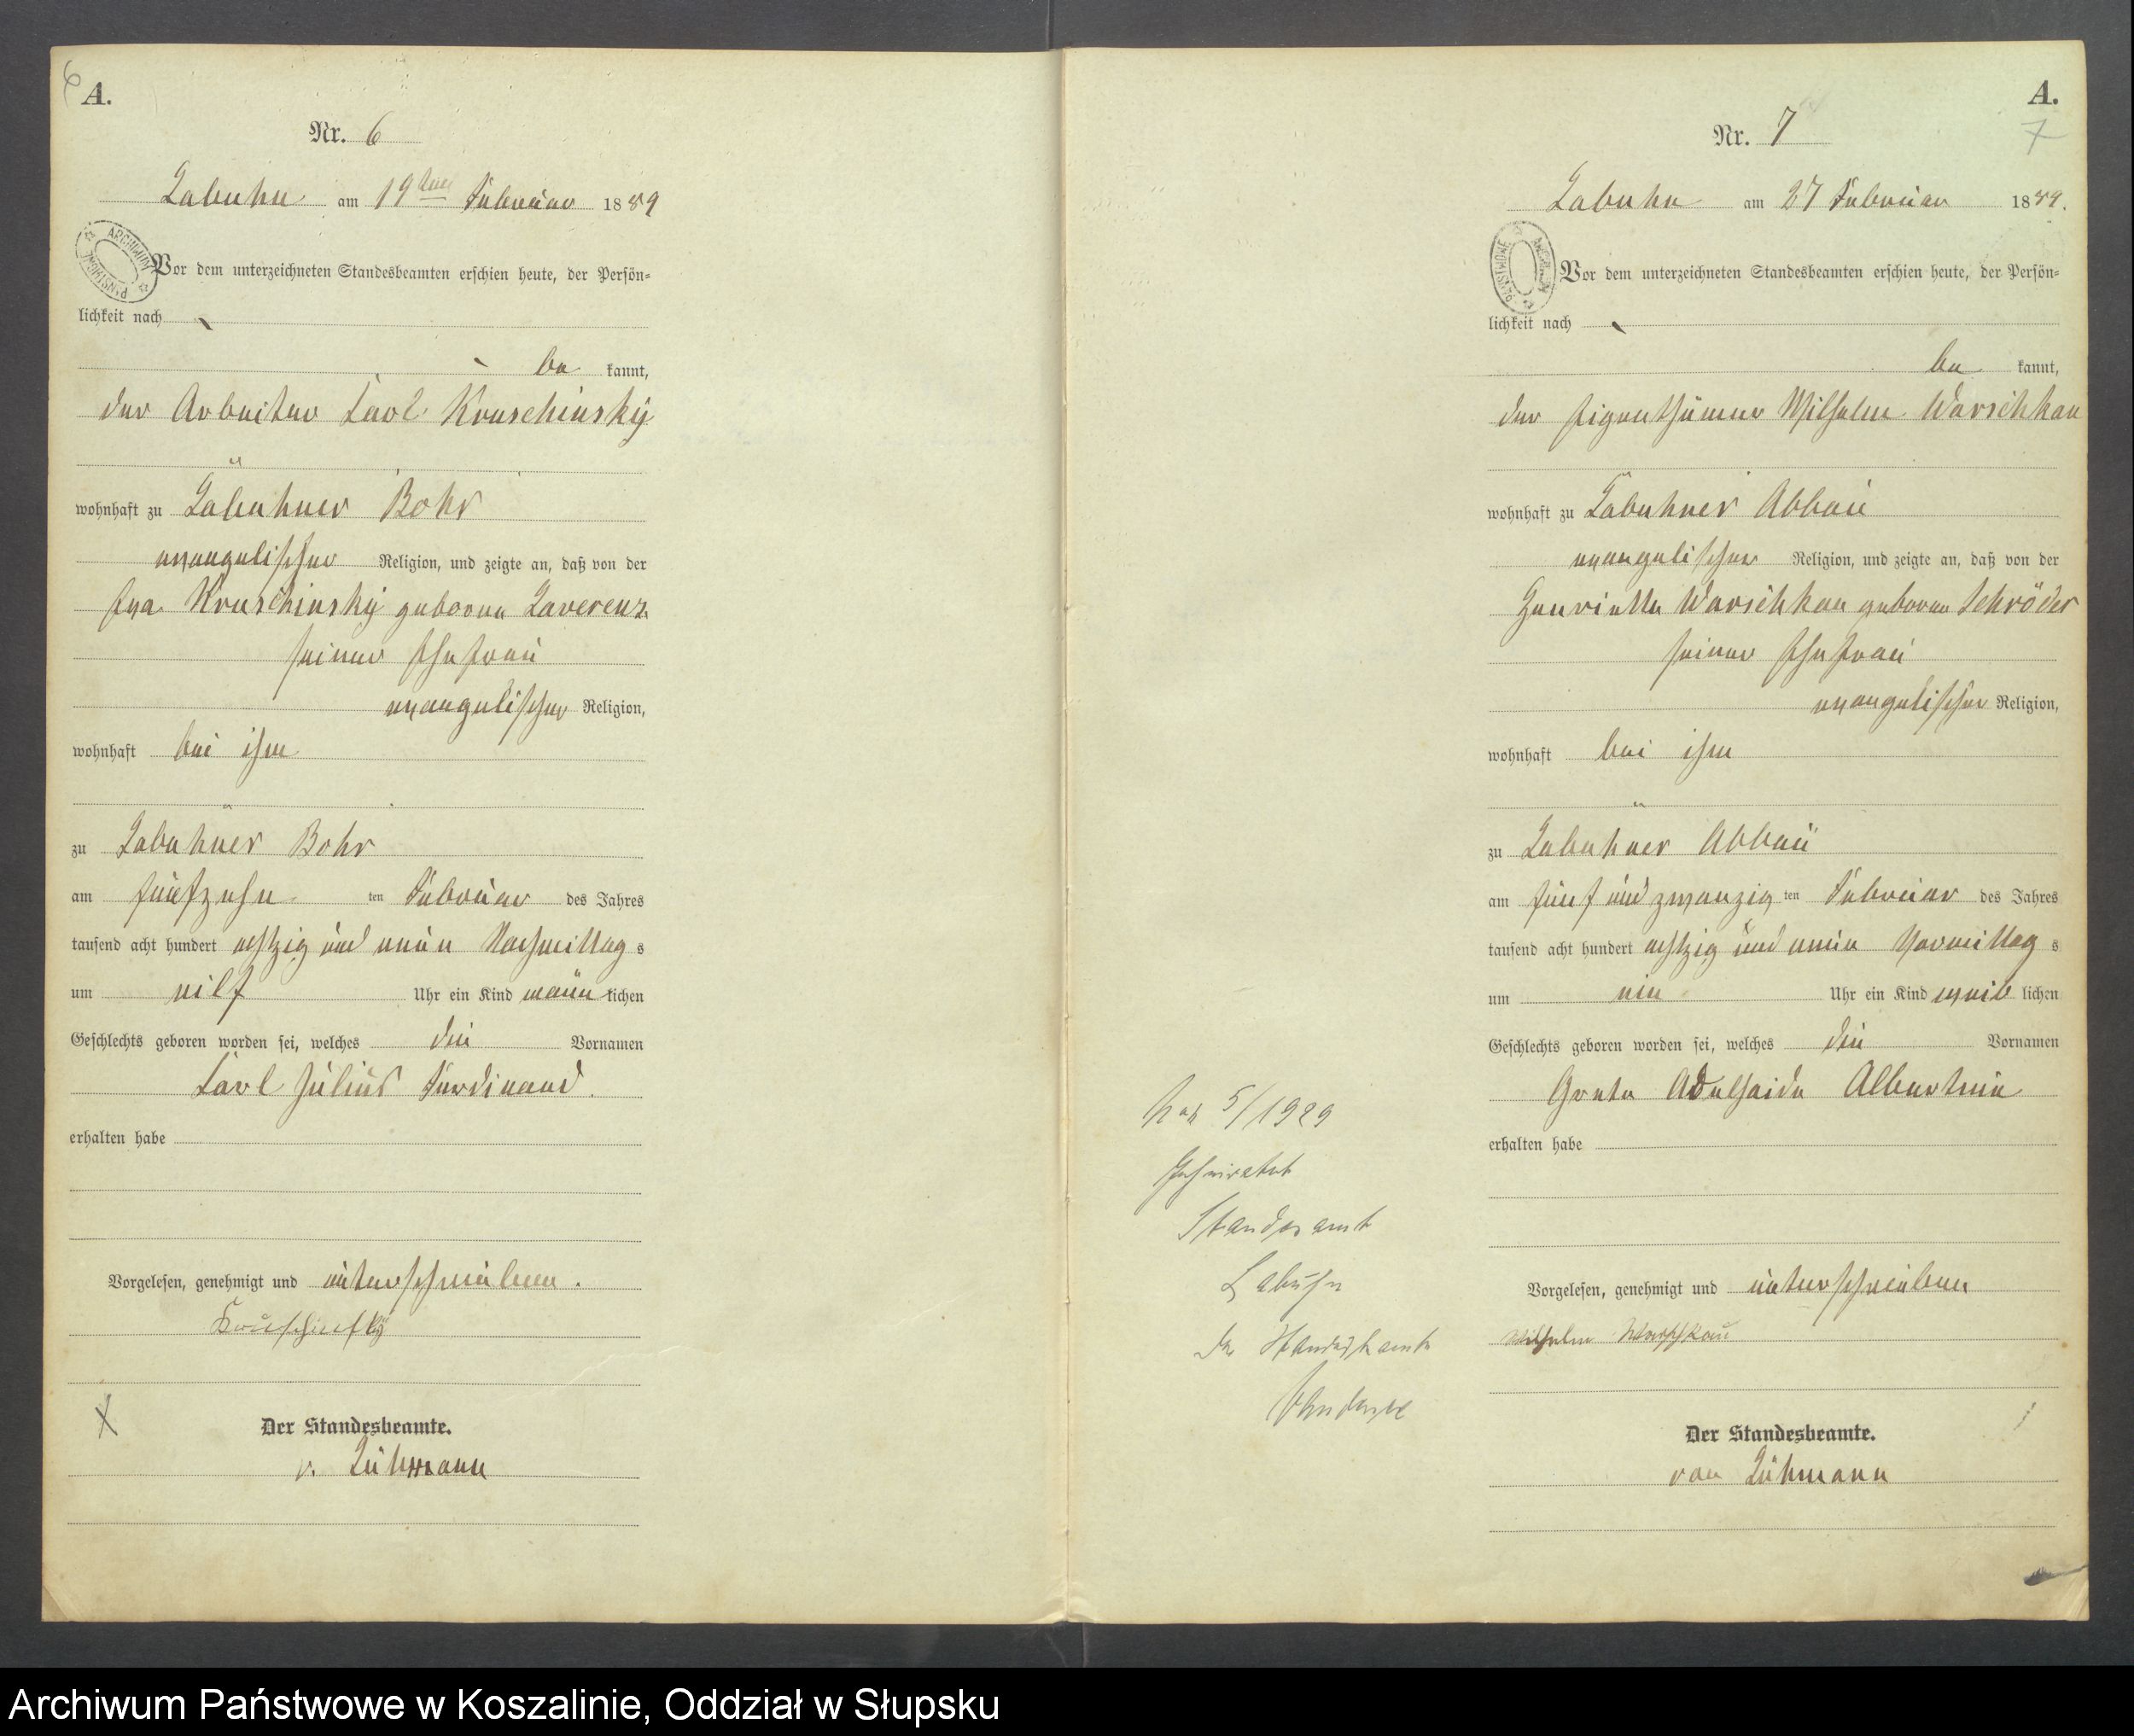 6
A.
Nr. 6
Labuhn am 19ten Februar 1889
ARCHIWUM PAŃSTWOWE
Vor dem unterzeichneten Standesbeamten erschien heute, der Persön-
lichkeit nach
be kannt,
der Arbeiter Carl Kruschinsky
wohnhaft zu Labuhner Bohr
evangelischer Religion, und zeigte an, daß von der
Eva Kruschinsky geborne Laverenz
seiner Ehefrau
evangelischer Religion,
wohnhaft bei ihm
zu Labuhner Bohr
am fünfzehn ten Februar des Jahres
tausend acht hundert achtzig und neun Nachmittag s
um elf Uhr ein Kind männ lichen
Geschlechts geboren worden sei, welches die Vornamen
Carl Julius Ferdinand
erhalten habe
Vorgelesen, genehmigt und unterschrieben.
Kruschinsky
Der Standesbeamte.
v. Lühmann
A.
7
Nr. 7
Labuhn am 27 Februar 1889.
ARCHIWUM PAŃSTWOWE
Vor dem unterzeichneten Standesbeamten erschien heute, der Persön-
lichkeit nach
be kannt,
der Eigenthümer Wilhelm Warschkau
wohnhaft zu Labuhner Abbau
evangelischer Religion, und zeigte an, daß von der
Henriette Warschkau geborne Schröder
seiner Ehefrau
evangelischer Religion,
wohnhaft bei ihm
zu Labuhner Abbau
am fünf und zwanzig ten Februar des Jahres
tausend acht hundert achtzig und neun Vormittag s
um ein Uhr ein Kind weib lichen
Geschlechts geboren worden sei, welches die Vornamen
Grete Adelhaide Albertine
erhalten habe
Vorgelesen, genehmigt und unterschrieben
Wilhelm Warschkau
Der Standesbeamte.
von Lühmann
5/1929
Geheiratet
Standesamt
Labuhn
Archiwum Państwowe w Koszalinie, Oddział w Słupsku